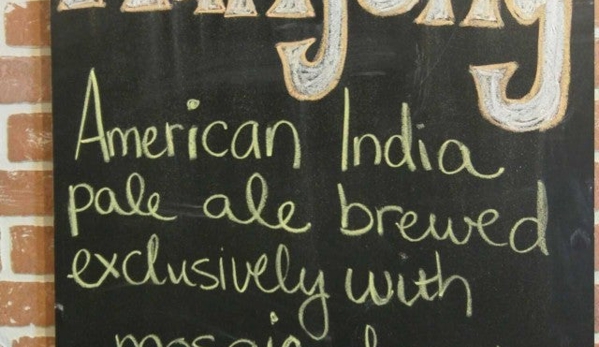 American India
pale ale brewed
exclusively with
mosaic